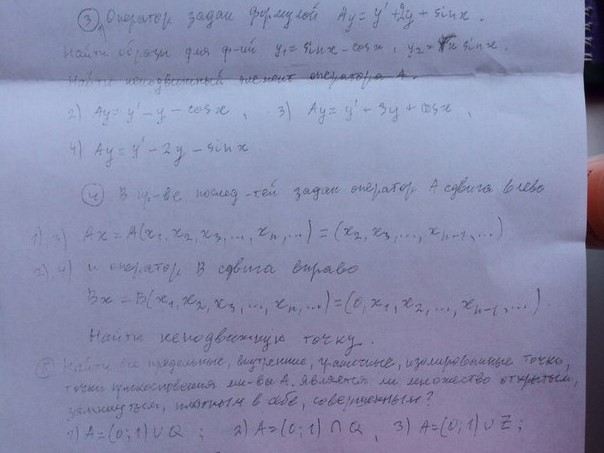 ③ Оператор задан формулой Ay = y' + 2y + sin x.
Найти образы для ф-ий y₁ = sin x - cos x, y₂ = x sin x.
Найти неподвижный элемент оператора A.
2) Ay = y' - y - cos x, 3) Ay = y' + 3y + cos x,
4) Ay = y' - 2y - sin x.
④ В пр-ве послед-тей задан оператор A сдвига влево
1), 3) Ax = A(x₁, x₂, x₃, ..., xₙ, ...) = (x₂, x₃, ..., xₙ₋₁, ...)
2), 4) и оператор B сдвига вправо
Bx = B(x₁, x₂, x₃, ..., xₙ, ...) = (0, x₁, x₂, ..., xₙ₋₁, ...).
Найти неподвижную точку.
⑤ Найти все предельные, внутренние, граничные, изолированные точки,
точки прикосновения мн-ва A. Является ли множество открытым,
замкнутым, плотным в себе, совершенным?
1) A = (0; 1) ∪ Q; 2) A = (0; 1) ∩ Q, 3) A = (0; 1) ∪ Z;